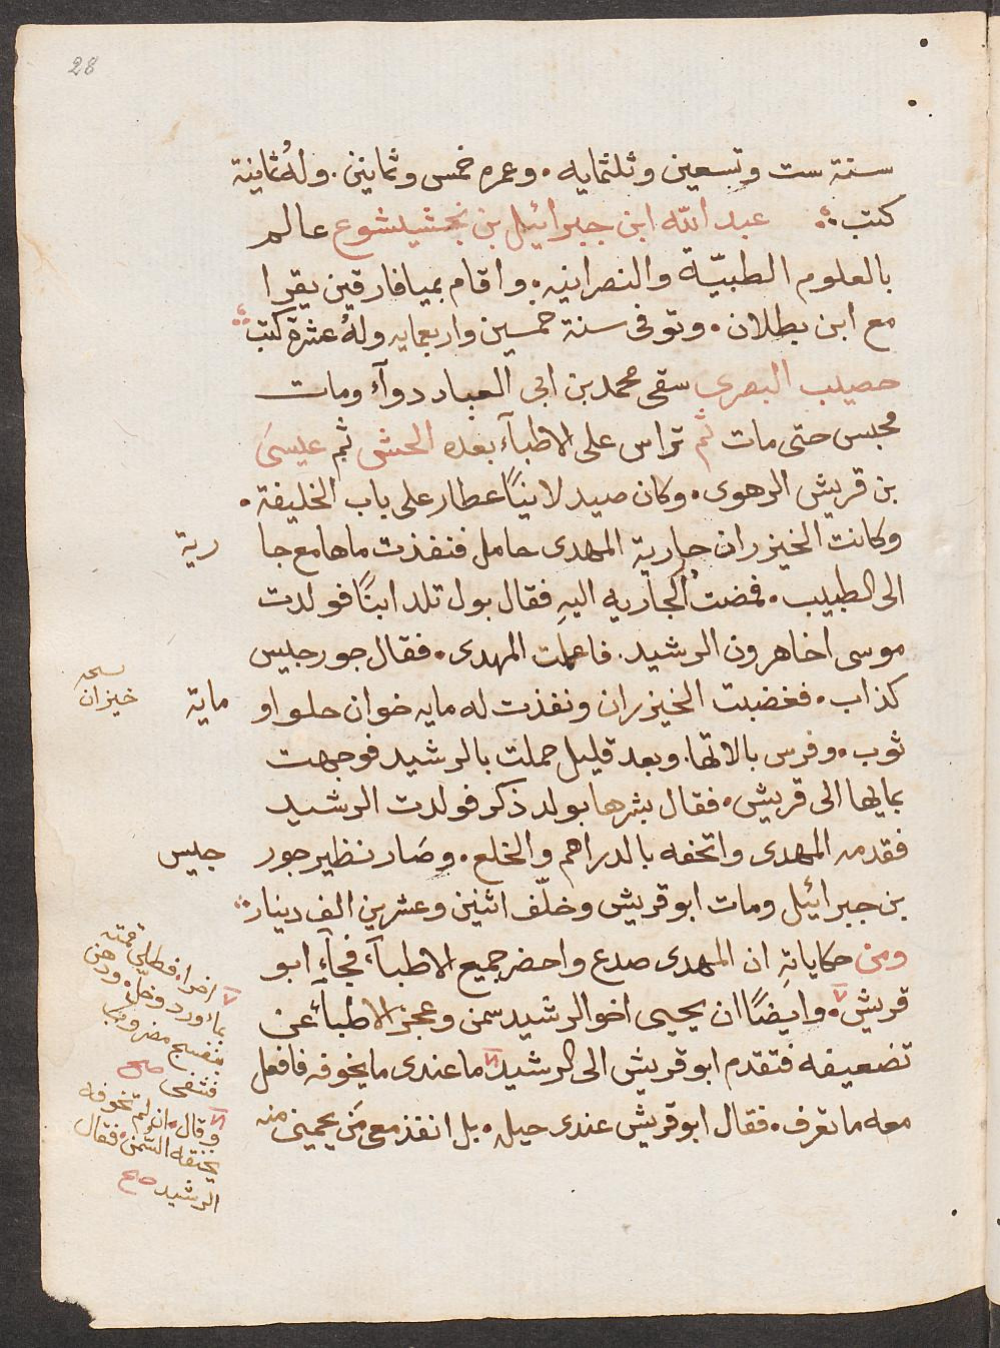 28
سنة ست وتسعين وثلثمايه. وعمره خمس وثمانين. ولهُ ثمانية
كتب؞ عبد الله ابن جبرائيل بن بخشيشوع عالم
بالعلوم الطبيّة والنصرانيه. واقام بميافارقين يقرا
مع ابن بطلان. وتوفى سنة خمسين واربعمايه ولهُ عشرة كتب؞
خصيب البصرى سقى محمد بن ابى العباد دوآء ومات
محبس حتى مات ثم تراس على الاطبآء بعده الحشى ثم عيسىَ
بن قريش الرهوى. وكان صيدلانيًا عطار على باب الخليفة.
وكانت الخيزران جارية المهدى حامل فنفذت ماها مع جارية
الى الطبيب. فمضتُ الجاريه اليهِ فقال بول تلد ابنًا فولدت
موسى اخا هرون الرشيد. فاعلمت المهدى. فقال جورجليس
كذاب. فغضبت الخيزران ونفذت له مايه خوان حلو او ماية
ثوب. وفرس بالاتها. وبعد قليل حملت بالرشيد فوجهت
بمايها الى قريش. فقال بشرها بولد ذكر فولدت الرشيد
فقدمه المهدى واتحفه بالدراهم والخلع. وصَار نظير جورجليس
بن جبرائيل ومات ابو قريش وخلّف اثنين وعشرين الف دينار؞
ومن حكاياتهِ ان المهدى صدع واحضر جميع الاطبآء. فجآء ابو
قريش. وايضًا ان يحيى اخو الرشيد سمن وعجز الاطبآء عن
تضعيفه فتقدم ابو قريش الى الرشيد ما عندى ما يخوفه فافعل
معه ما تعرف. فقال ابو قريش عندى حيله. بل انفذ مع مَن يحمينى منه
نسخه
خيزان
اخرا. فطلى قمته
بماء ورد وخل. ودهن
بنفسج مضروب
فشفى صح
وقال. ان لم تخوفه
يخنقه السّمن. فقال
الرشيد صح